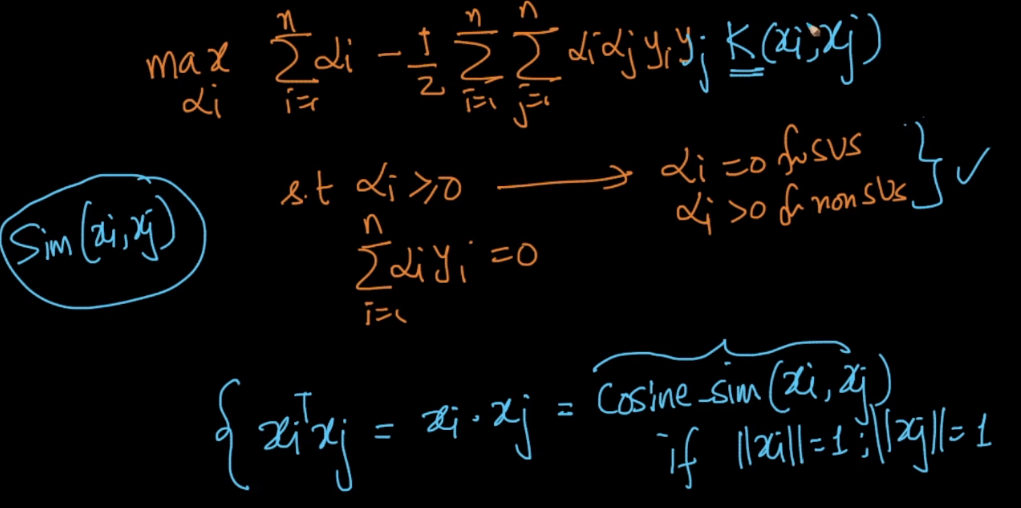 max αi Σ i=1 n αi - 1/2 Σ i=1 n Σ j=1 n αi αj yi yj K(xi, xj)
s.t αi ≥ 0 → αi = 0 for SVs
αi > 0 for non SVs } ✓
Sim(xi, xj)
Σ i=1 n αi yi = 0
{ xiᵀxj = xi · xj = Cosine-sim(xi, xj)
if ||xi|| = 1 ; ||xj|| = 1